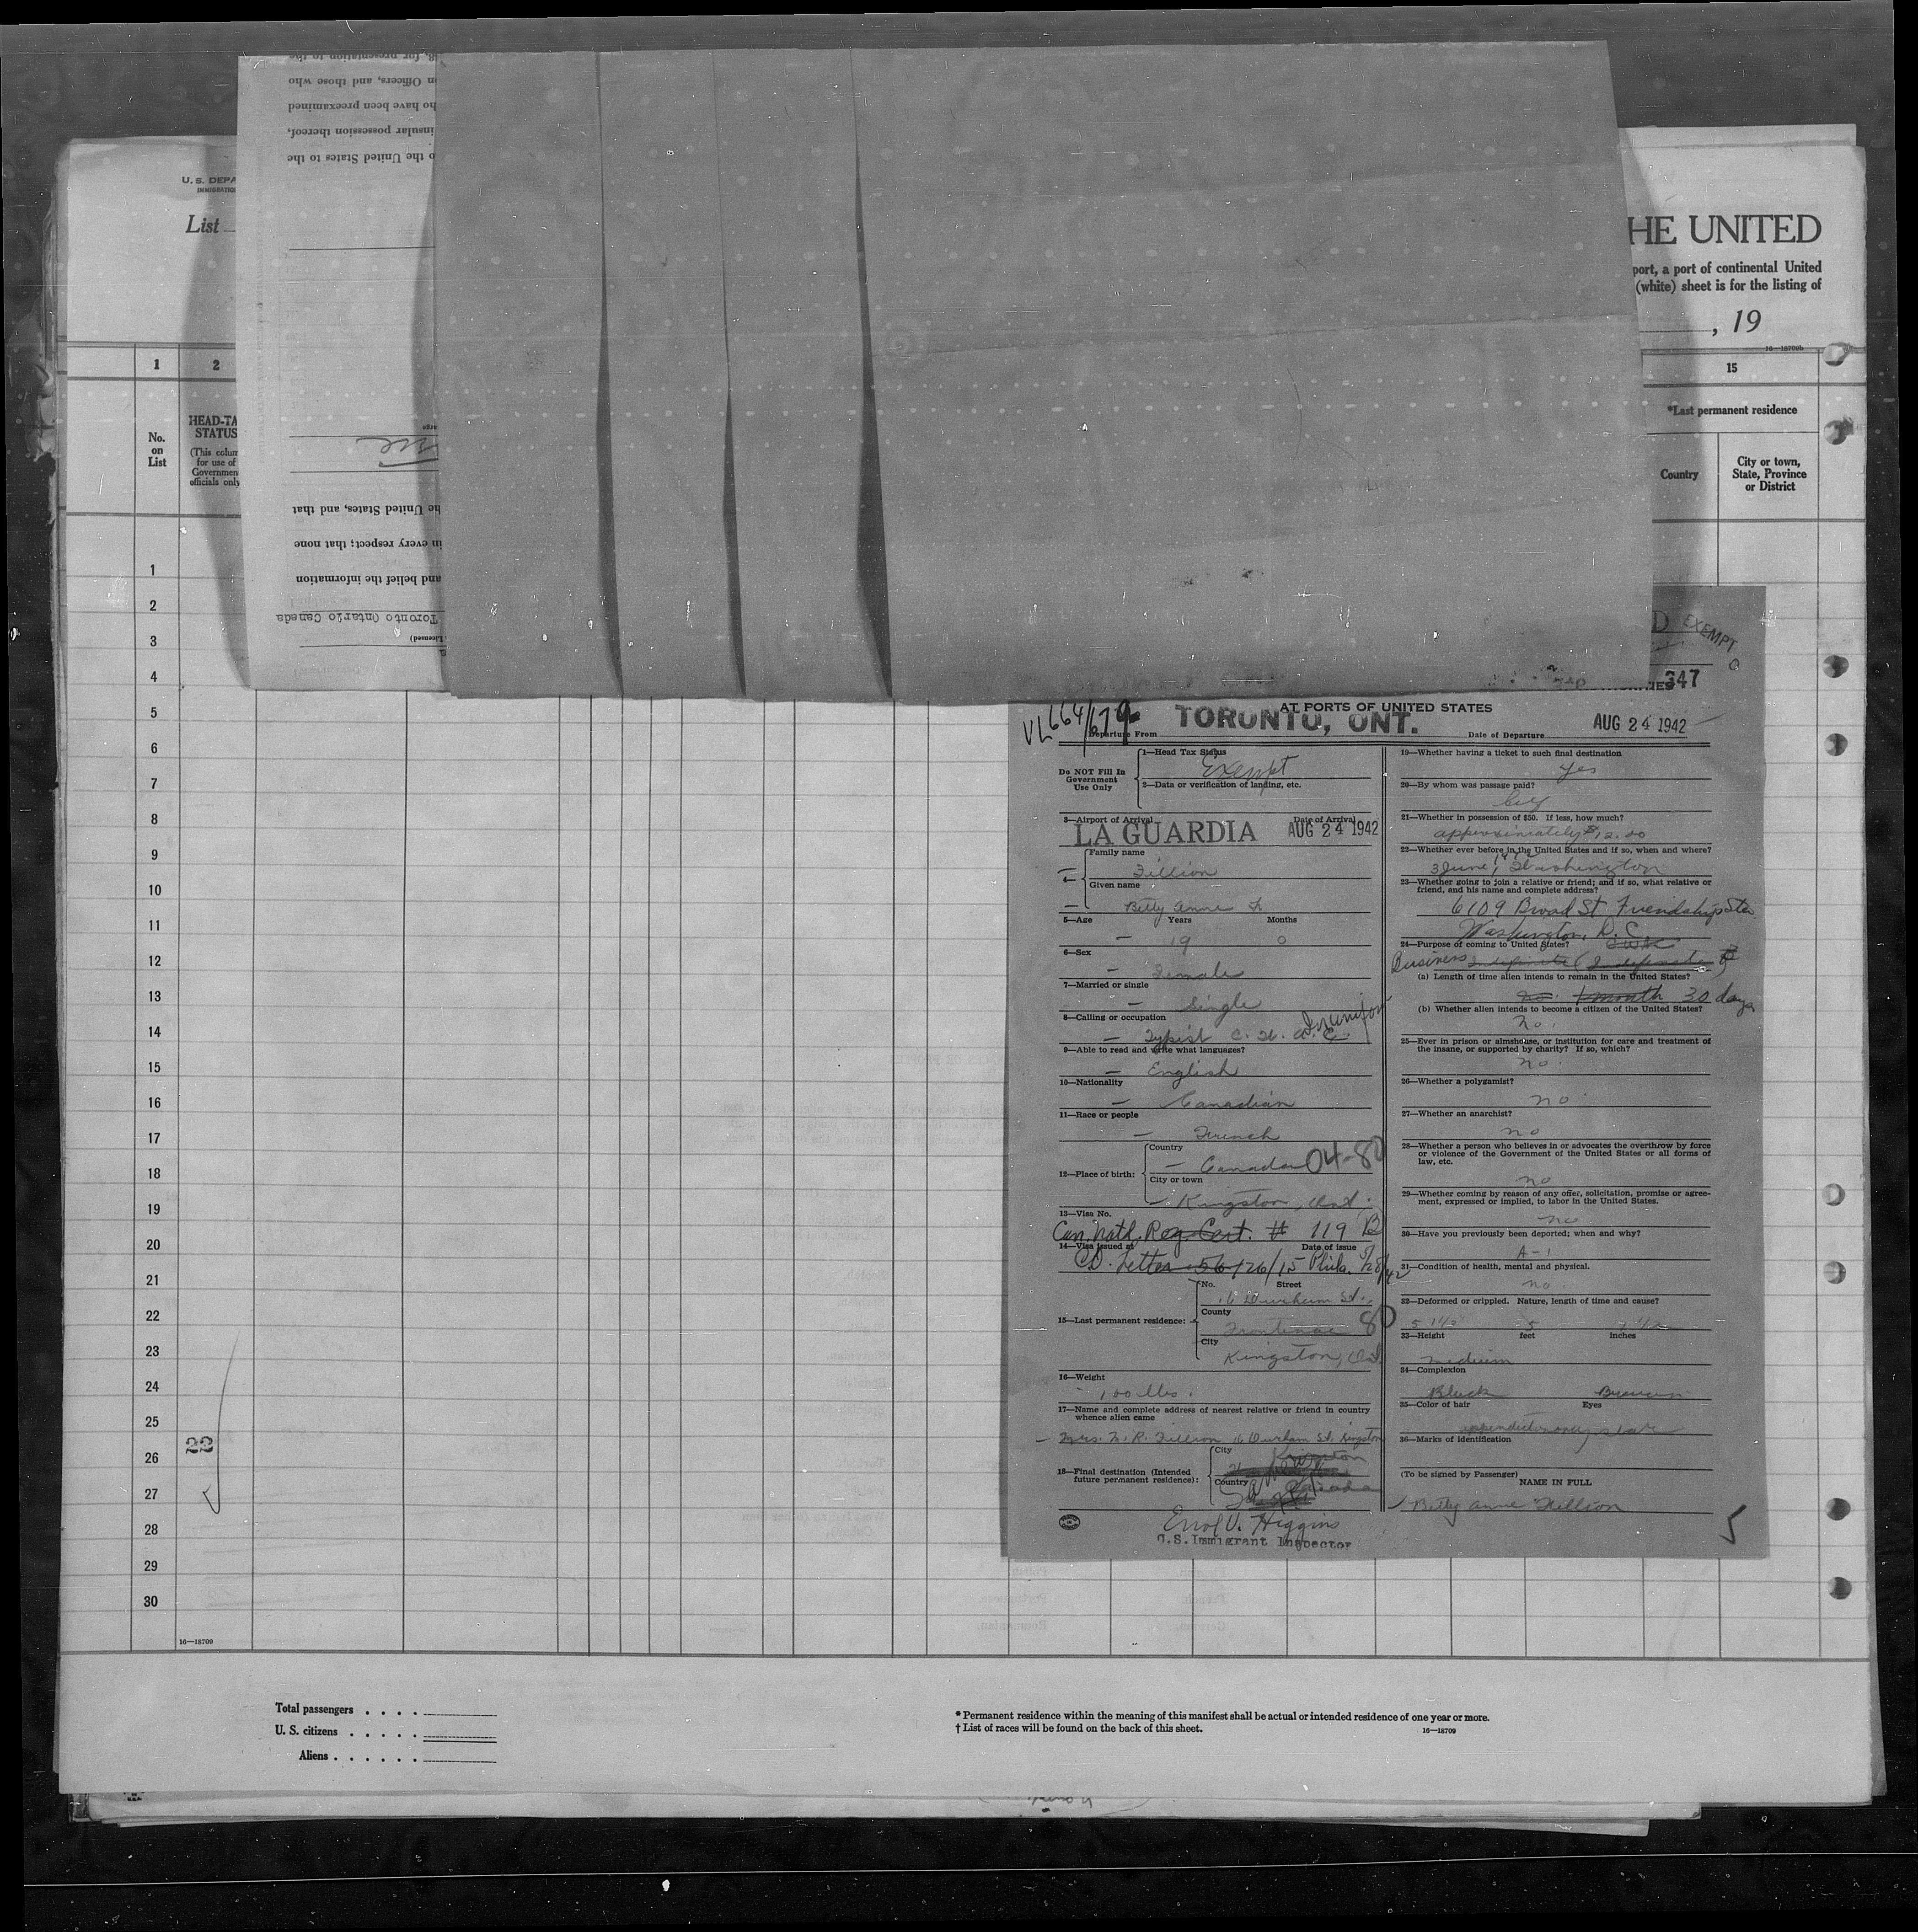 U. S. DEPA
IMMIGRATIO
List
HE UNITED
port, a port of continental United
(white) sheet is for the listing of
, 19
16—18709b
1
2
15
No.
on
List
HEAD-TA
STATUS
(This colum
for use of
Governmen
officials only
*Last permanent residence
Country
City or town,
State, Province
or District
for presentation to the
n Officers, and those who
ho have been preexamined
insular possession thereof,
o the United States to the
arge
he United States, and that
in every respect; that none
and belief the information
Toronto Ontario Canada
Licensed)
1
2
3
4
5
6
7
8
9
10
11
12
13
14
15
16
17
18
19
20
21
22
23
24
25
26
27
28
29
30
22
16—18709
D EXEMPT
347
AT PORTS OF UNITED STATES
VL 664/679
Departure From TORONTO, ONT.
Date of Departure AUG 24 1942
Do NOT Fill In
Government
Use Only
1—Head Tax Status
Exempt
2—Data or verification of landing, etc.
3—Airport of Arrival
Date of Arrival
LA GUARDIA AUG 24 1942
4—
Family name
Fillion
Given name
Betty Anne
5—Age Years Months
19 0
6—Sex
Female
7—Married or single
Single
8—Calling or occupation
Typist C. W. A. C. In uniform
9—Able to read and write what languages?
English
10—Nationality
Canadian
11—Race or people
French
12—Place of birth:
Country
Canada 04-80
City or town
Kingston, Ont.
13—Visa No.
Can. Natl. Reg. Cert. # 119 B
14—Visa issued at Date of issue
CO. Letter 56126/15 Phila.
15—Last permanent residence:
No. Street
16 Durham St.
County
Frontenac 80
City
Kingston, Ont.
16—Weight
100 lbs.
17—Name and complete address of nearest relative or friend in country
whence alien came
Mrs. N. R. Fillion 16 Durham St. Kingston
18—Final destination (Intended
future permanent residence):
City
Kingston
Country
Canada
Errol V. Higgins
U.S. Immigrant Inspector
19—Whether having a ticket to such final destination
Yes
20—By whom was passage paid?
21—Whether in possession of $50. If less, how much?
approximately $12.00
22—Whether ever before in the United States and if so, when and where?
3 June, 1942 Washington
23—Whether going to join a relative or friend; and if so, what relative or
friend, and his name and complete address?
6109 Broad St Friendship Sta.
Washington, D. C.
24—Purpose of coming to United States?
Business
(a) Length of time alien intends to remain in the United States?
1 month 30 days
(b) Whether alien intends to become a citizen of the United States?
no.
25—Ever in prison or almshouse, or institution for care and treatment of
the insane, or supported by charity? If so, which?
no.
26—Whether a polygamist?
no
27—Whether an anarchist?
no
28—Whether a person who believes in or advocates the overthrow by force
or violence of the Government of the United States or all forms of
law, etc.
no
29—Whether coming by reason of any offer, solicitation, promise or agree-
ment, expressed or implied, to labor in the United States.
no
30—Have you previously been deported; when and why?
A-1
31—Condition of health, mental and physical.
no.
32—Deformed or crippled. Nature, length of time and cause?
33—Height feet inches
medium
34—Complexion
Black Brown
35—Color of hair Eyes
36—Marks of identification
(To be signed by Passenger)
NAME IN FULL
Betty Anne Fillion
Total passengers . . . .
U. S. citizens . . . . .
Aliens . . . . . .
* Permanent residence within the meaning of this manifest shall be actual or intended residence of one year or more.
† List of races will be found on the back of this sheet.
16—18709